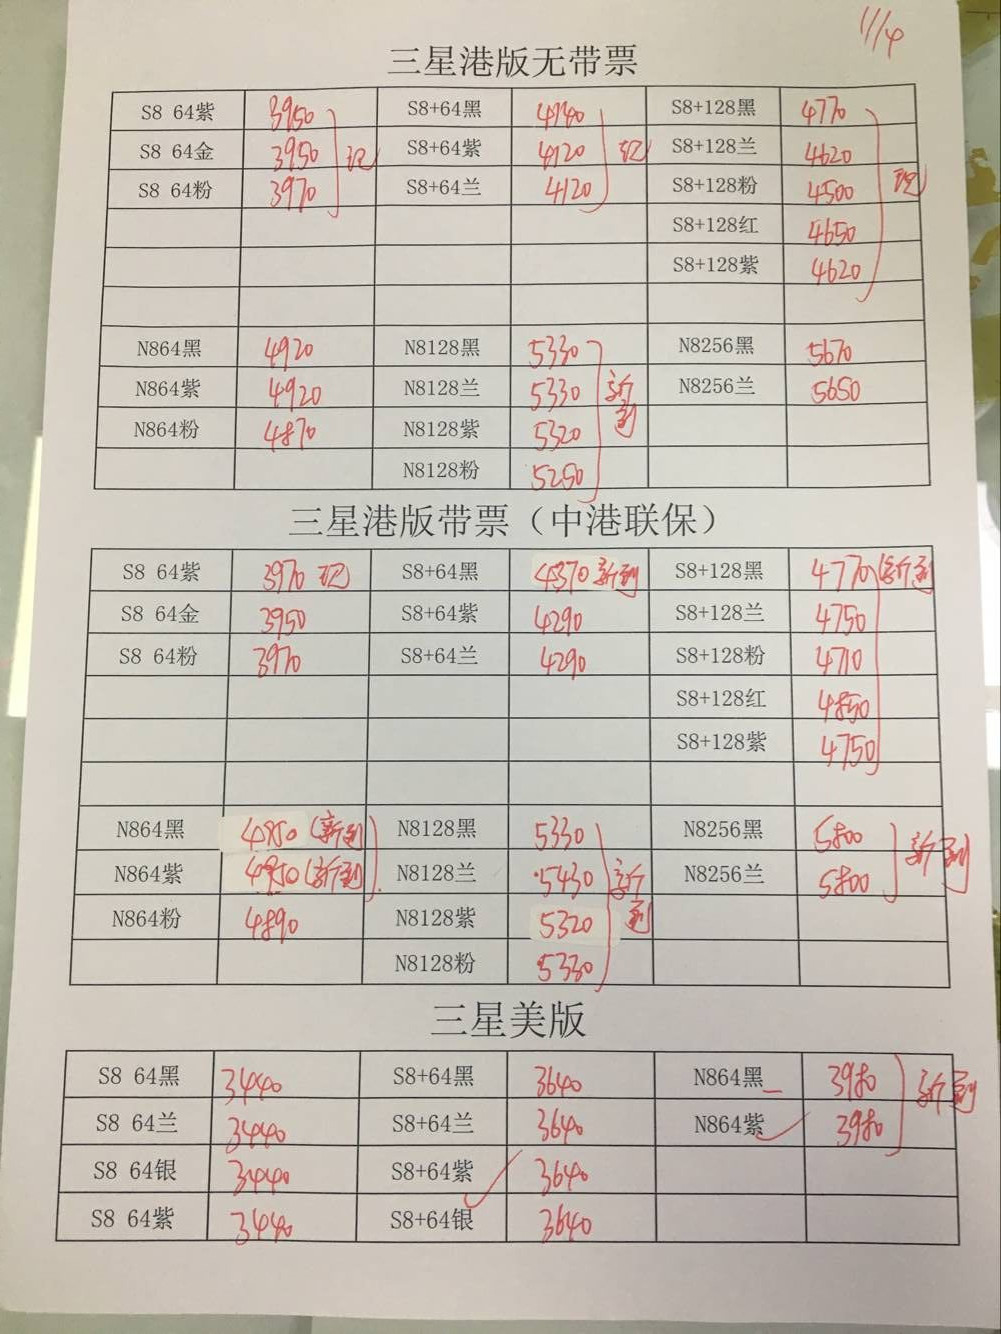 11/4
三星港版无带票
S8 64紫 3950 S8+64黑 4140 S8+128黑 4770
S8 64金 3950 现 S8+64紫 4120 现 S8+128兰 4620
S8 64粉 3970 S8+64兰 4120 S8+128粉 4500 现
S8+128红 4650
S8+128紫 4620
N864黑 4920 N8128黑 5330 N8256黑 5670
N864紫 4920 N8128兰 5330 新到 N8256兰 5650
N864粉 4870 N8128紫 5320
N8128粉 5250
三星港版带票（中港联保）
S8 64紫 3970 现 S8+64黑 4370 新到 S8+128黑 4770 (新到
S8 64金 3950 S8+64紫 4290 S8+128兰 4750
S8 64粉 3970 S8+64兰 4290 S8+128粉 4710
S8+128红 4850
S8+128紫 4750
N864黑 4950 (新到 N8128黑 5330 N8256黑 5800 新到
N864紫 4950 (新到 N8128兰 5430 新到 N8256兰 5800
N864粉 4890 N8128紫 5320
N8128粉 5330
三星美版
S8 64黑 3440 S8+64黑 3640 N864黑 3980 新到
S8 64兰 3440 S8+64兰 3640 N864紫 3980
S8 64银 3440 S8+64紫 3640
S8 64紫 3440 S8+64银 3640